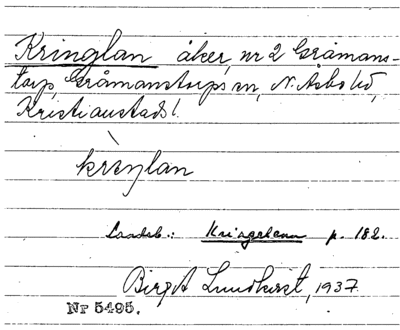 Kringlan åker, nr 2 Gråmans-
torp, Gråmanstorps sn, N. Åsbo hd,
Kristianstads l.
kriŋlan
Landsb.: Kringelann p. 182.
Birgit Lundkvist, 1937
Nr 5495.